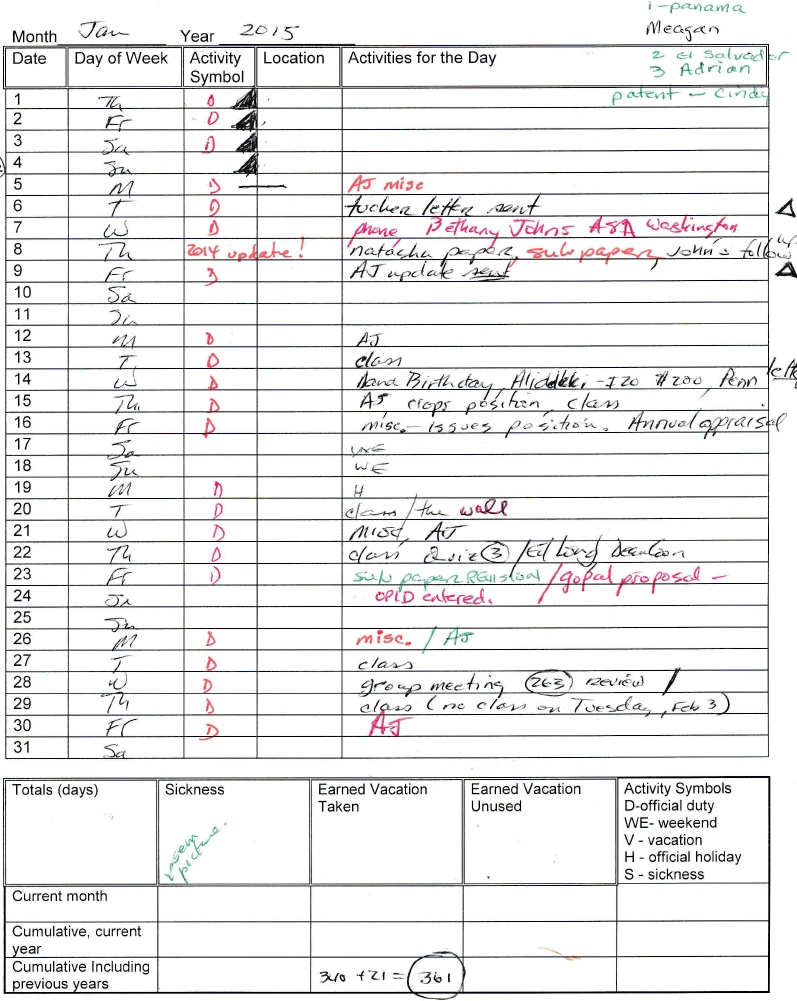 1-panama
Month Jan Year 2015 Meagan
Date Day of Week Activity Symbol Location Activities for the Day 2 El Salvador
3 Adrian
1 Th D patent - Cindy
2 Fr D
3 Sa D
4 Su
5 M D AJ misc
6 T D tucker letter sent
7 W D phone Bethany Johns ASA Washington
8 Th 2014 update! natacha paper, sulu paper, John's follow up
9 Fr D AJ update sent
10 Sa
11 Su
12 M D AJ
13 T D class
14 W D Nana Birthday, - I20 #200, Penn letter
15 Th D AJ crops position, class
16 Fr D misc.- issues position. Annual appraisal
17 Sa WE
18 Su WE
19 M D H
20 T D class / the wall
21 W D misc, AJ
22 Th D class Quiz 3 / Ed Long
23 Fr D sulu paper REVISION / gopal proposal -
24 Sa OPID entered.
25 Su
26 M D misc. / AJ
27 T D class
28 W D group meeting 263 review /
29 Th D class (no class on Tuesday, Feb 3)
30 Fr D AJ
31 Sa
Totals (days) Sickness Earned Vacation Taken Earned Vacation Unused Activity Symbols
D-official duty
WE- weekend
V - vacation
H - official holiday
S - sickness
picture.
Current month
Cumulative, current year
Cumulative Including previous years 340 + 21 = 361